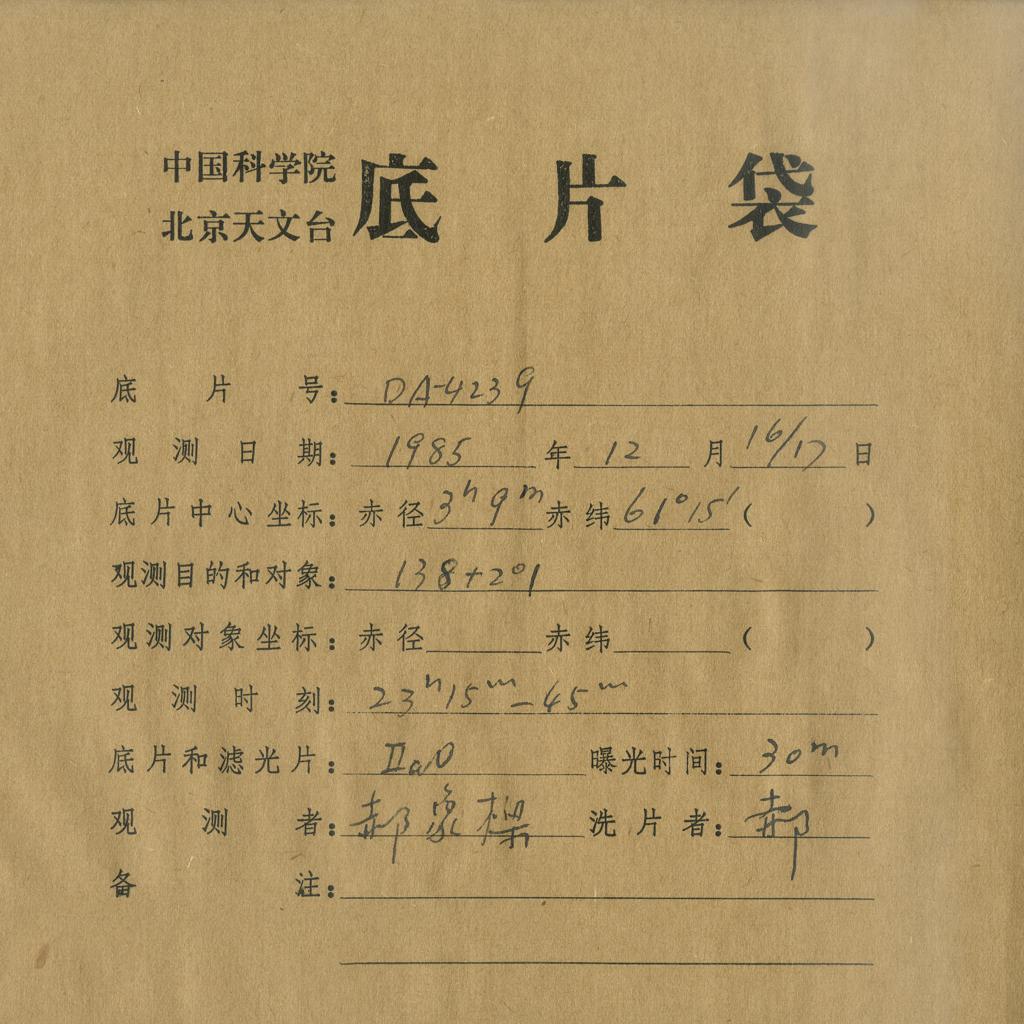 中国科学院
北京天文台
底片袋
底片号：DA-4239
观测日期：1985年12月16/17日
底片中心坐标：赤径3ʰ9ᵐ赤纬61°15′（ ）
观测目的和对象：138+2°1
观测对象坐标：赤径 赤纬 （ ）
观测时刻：23ʰ15ᵐ-45ᵐ
底片和滤光片：ⅡaO 曝光时间：30ᵐ
观测者：郝象樑 洗片者：郝
备注：